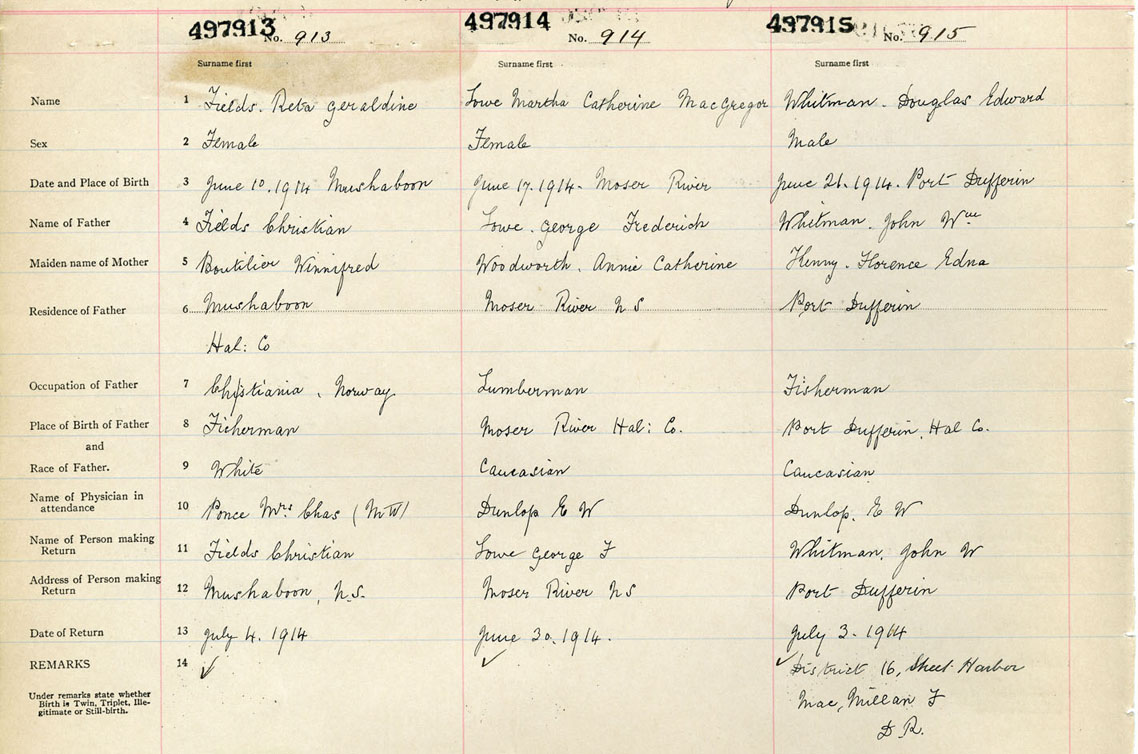 497913 No. 913 497914 No. 914 497915 No. 915
Surname first Surname first Surname first
Name 1 Fields. Reta Geraldine Lowe Martha Catherine MacGregor Whitman. Douglas Edward
Sex 2 Female Female Male
Date and Place of Birth 3 June 10. 1914 Mushaboon June 17. 1914. Moser River June 21. 1914. Port Dufferin
Name of Father 4 Fields Christian Lowe. George Frederick Whitman. John Wm
Maiden name of Mother 5 Boutilier Winnifred Woodworth. Annie Catherine Kenny. Florence Edna
Residence of Father 6 Mushaboon Moser River N S Port Dufferin
Hal: Co
Occupation of Father 7 Christiania, Norway Lumberman Fisherman
Place of Birth of Father 8 Fisherman Moser River Hal: Co. Port Dufferin, Hal Co.
and
Race of Father. 9 White Caucasian Caucasian
Name of Physician in
attendance 10 Ponce Mrs Chas (MW) Dunlop E W Dunlop. E W
Name of Person making
Return 11 Fields Christian Lowe George F Whitman, John W
Address of Person making
Return 12 Mushaboon, N.S. Moser River N S Port Dufferin
Date of Return 13 July 4. 1914 June 30. 1914. July 3. 1914
REMARKS 14 ✓ ✓ ✓ District 16, Sheet Harbor
Under remarks state whether
Birth is Twin, Triplet, Ille-
gitimate or Still-birth. Mac, Millan F
D R.